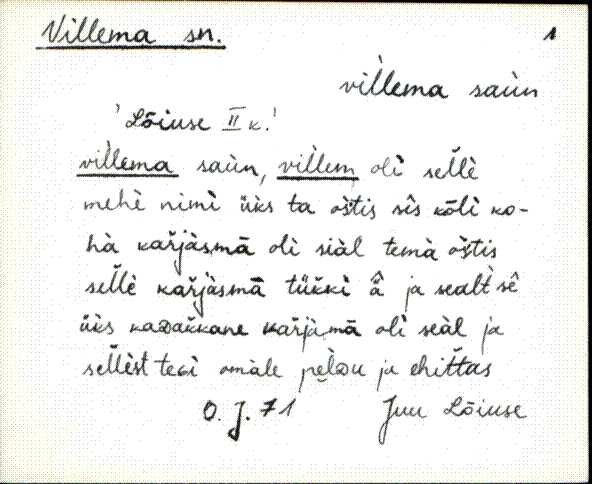 Villema sn. 1
vil̀lema saùn
'Lõiuse II k.'
vil̀lema saùn, vil̀lem oli sel̆lè
mehè nimì ük̀s ta os̀tis sîs kōlì ko-
hà kar̆jàsmā olì siàl temà os̀tis
sel̆lè kar̆jàsmā tük̆kì â ja sealt̀ sê
ük̀s kaᴅak̆kane kar̆jàmā olì seàl ja
sel̆lèst teɢì omàle pel̀ᴅu ja ehit̆tas
O. J. 71 Juu Lõiuse